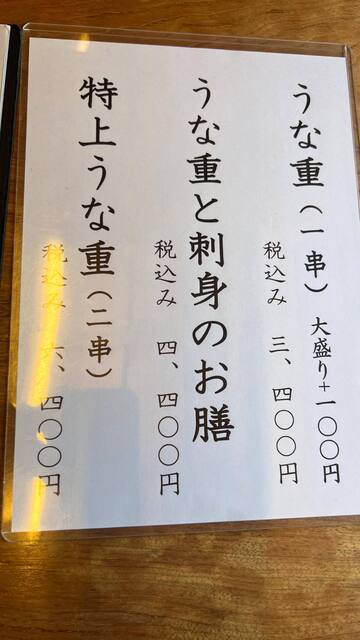 うな重（一串）　大盛り＋一〇〇円
税込み　三、四〇〇円
うな重と刺身のお膳
税込み　四、四〇〇円
特上うな重（二串）
税込み　六、四〇〇円